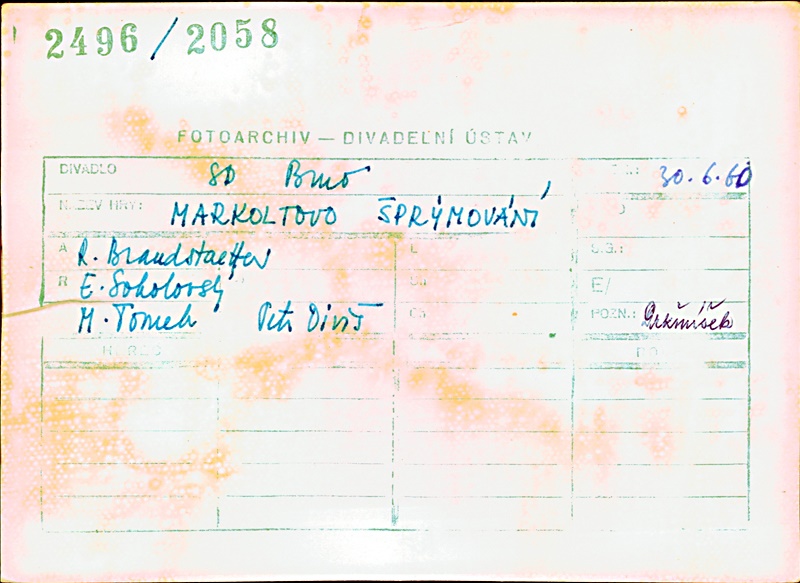 2496 / 2058
FOTOARCHIV — DIVADELNÍ ÚSTAV
DIVADLO SD Brno 30.6.60
NÁZEV HRY: MARKOLTOVO ŠPRÝMOVÁNÍ
A R. Brandstaetter
R E. Sokolovský E/
M. Tomek Petr Diviš POZN.: